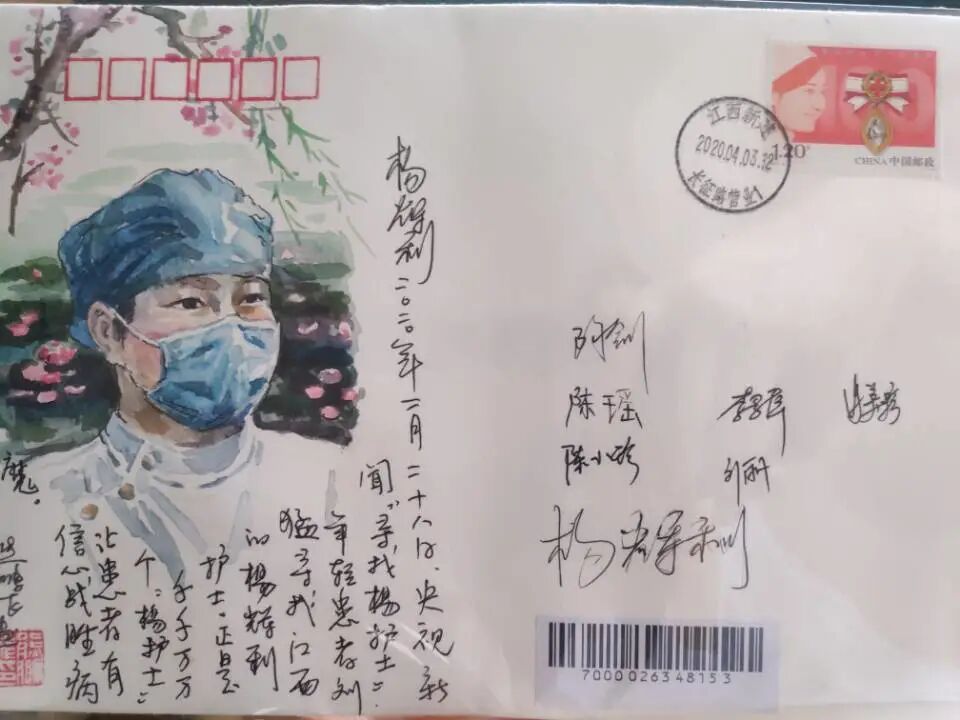 杨辉利 二〇二〇年二月二十八日,央视新
闻“寻找杨护士”
年轻患者刘
猛寻找江西
的杨辉利
护士。正是
千千万万
个“杨护士”
让患者有
信心战胜病
魔。
江西新建
2020.04.03.12
长征路营业1
1.20
CHINA 中国邮政
陈瑶
陈小珍
刘丽
杨辉利
7000026348153